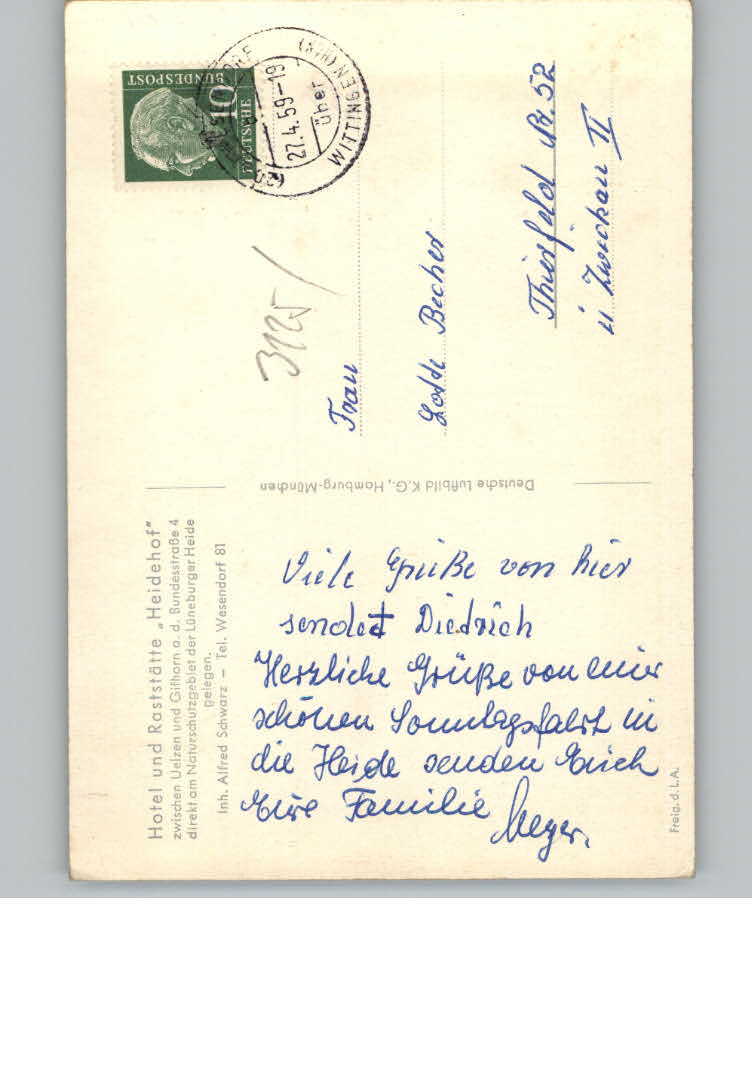 Hotel und Raststätte „Heidehof"
zwischen Uelzen und Gifhorn a. d. Bundesstraße 4
direkt am Naturschutzgebiet der Lüneburger Heide
gelegen.
Inh. Alfred Schwarz – Tel. Wesendorf 81
Viele Grüße von hier
sendet Diedrich
Herzliche Grüße von einer
schönen Sonntagsfahrt in
die Heide senden Euch
Eure Familie Meyer.
Freig. d. L.A.
Deutsche Luftbild K.G., Hamburg-München
DEUTSCHE
10
BUNDESPOST
27.4.59-19
über
WITTINGEN (HAN)
3125/
Frau
Lotte Becher
Thierfeld Nr. 52
ü Zwickau II